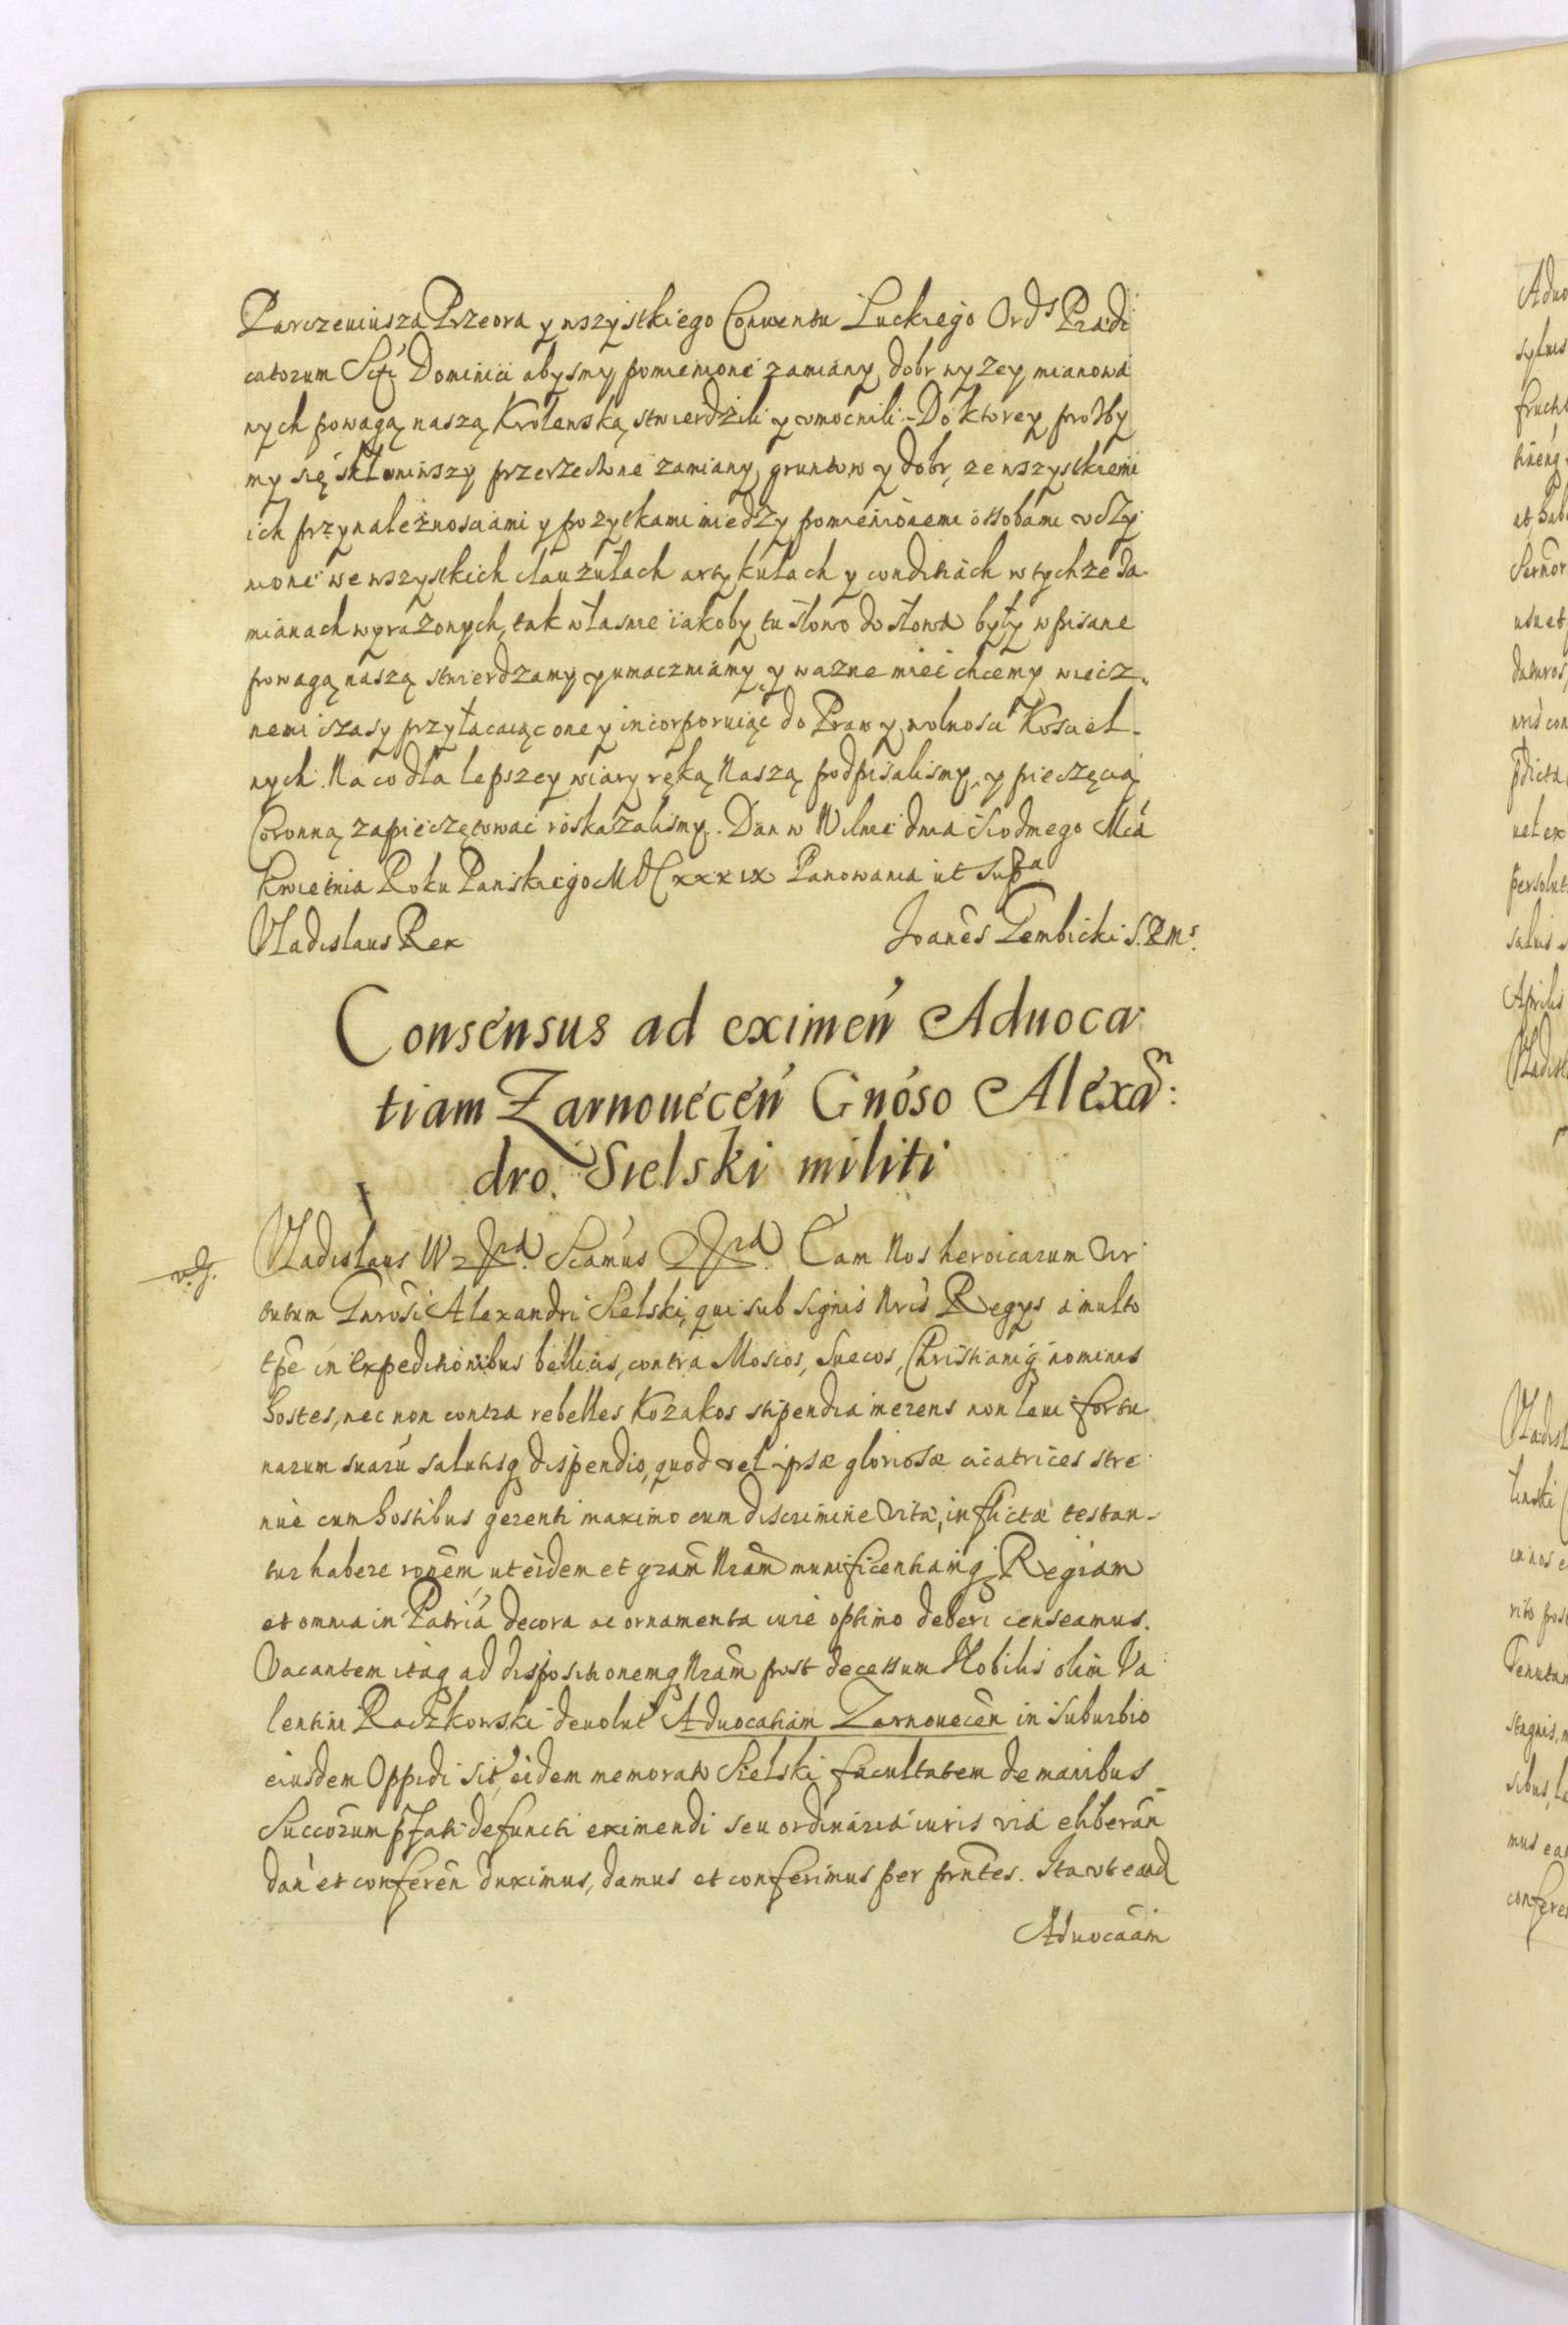 Parczeviusza Przeora y wszystkiego Conventu Luckiego Ord^s Prædi
catorum S^cti Dominici abysmy pomienione zamiany dobr wyzey mianowa
nych powagą naszą Krolewską stwierdzili y umocnili. Do ktorey prozby
my się skłoniwszy przerzeczone zamiany gruntow y dobr, ze wszystkiemi
ich przynaleznosciami y pozytkami miedzy pomienionemi ossobami uczy
nione we wszystkich clauzulach artykułach y conditiach w tychze za
mianach wyrazonych, tak własnie iakoby tu słowo do słowa były wpisane
powagą naszą stwierdzamy y umaczniamy y wazne miec chcemy wiecz.
nemi czasy przyłacaiąc one y incorporuiąc do Praw y wolnosci Kosciel.
nych. Na co dla lepszey wiary ręką Naszą podpisalismy, y pieczęcią
Coronną zapieczętowac roskazalismy. Dan w Wilnie dnia siodmego M̃ca
Kwietnia Roku Panskiego MDCxxxix Panowania ut sup^a
Vladislaus Rex Joañes Gembicki S.R.M^s.
Consensus ad eximeñ Aduoca
tiam Zarnoueceñ Gnoso Alexañ:
dro. Sielski militi
v.g.
Vladislaus IV &c^ra. Sc̃amus &c^ra. Eam Nos heroicarum vir
tutum Gnrosi Alexandri Sielski, qui sub signis Nris̃ Regys a multo
tpẽ in expeditionibus bellicis, contra Moscos, Suecos, Christianiq̃ nominis
hostes, nec non contra rebelles Kozakos stipendia merens non leui fortu
narum suarũ salutisq̃ dispendio, quod vel ipsæ gloriosæ cicatrices stre
nue cum hostibus gerenti maximo cum discrimine vitæ, inflictæ testan-
tur habere roñem ut eidem et grañ Nrañ munificentiamq̃ Regiam
et omnia in Patria decora ac ornamenta iure optimo deberi censeamus.
Vacantem itaq̃ ad dispositionemq̃ Nrañ post decessum Nobilis olim Va
lentini Raczkowski deuolut Aduocatiam Zarnoueceñ in suburbio
eiusdem Oppidi sit, eidem memorato Sielski facultatem de manibus
Succõrum pfati defuncti eximendi seu ordinaria iuris via eliberañ
dañ et confereñ duximus, damus et conferimus per prñtes. Ita vt eand
Aduocãam